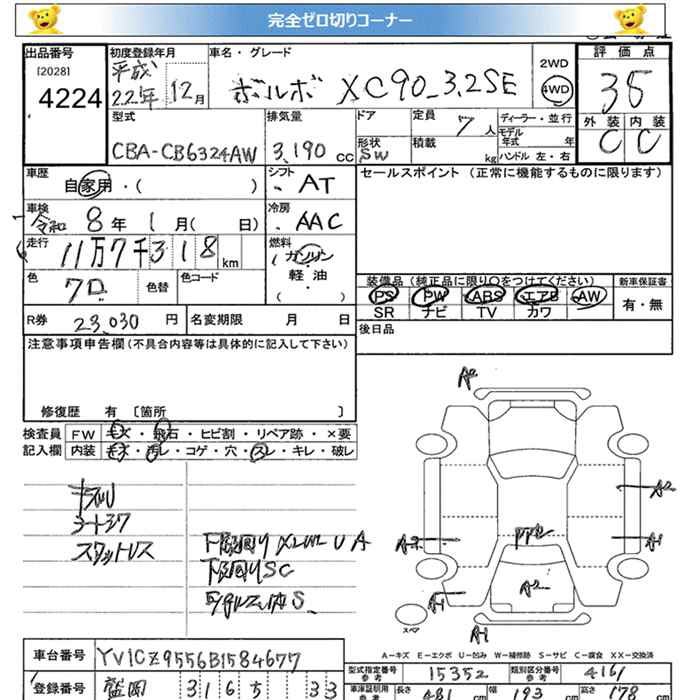 完全ゼロ切りコーナー
出品番号
[2028]
4224
初度登録年月
平成
22年 12月
車名・グレード
ボルボ XC90 3.2SE
2WD
4WD
評価点
35
外装 内装
C C
型式
CBA-CB6324AW
排気量
3,190 cc
ドア
形状
SW
定員
7人
積載
kg
ディーラー・並行
モデル
年式 年
ハンドル 左・右
車歴
自家用・( )
シフト
AT
セールスポイント (正常に機能するものに限ります)
車検
令和 8年 1月( 日)
冷房
AAC
走行
11万7千318km
燃料
ガソリン
軽・油
( )
色
色替
色コード
装備品 (純正品に限り○をつけてください)
新車保証書
PS PW ABS エアB AW
SR ナビ TV カワ
有・無
R券 23,030 円
名変期限 月 日
後日品
注意事項申告欄(不具合内容等は具体的に記入して下さい)
修復歴 有 〔箇所 〕
検査員
記入欄
FW キズ・飛石・ヒビ割・リペア跡・×要
内装 キズ・汚レ・コゲ・穴・スレ・キレ・破レ
スタットレス
下廻りSC
A2
A2
A1
A2
A1
A1
スペア
A-キズ E-エクボ U-凹み W-補修跡 S-サビ C-腐食 XX-交換済
車台番号 YV1CZ9556B1584677
型式指定番号
参考
15352
類別区分番号
参考
4161
登録番号 盛岡 3165 33
車庫証明用
参考
長さ 481
幅 193
高さ 178